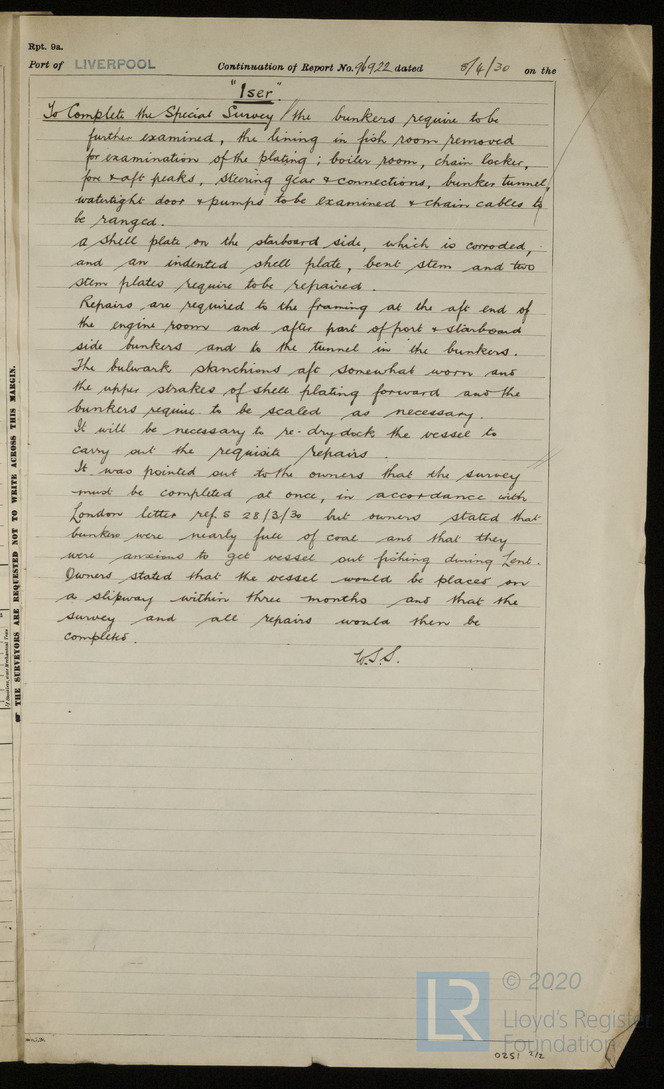 Rpt. 9a.
Port of LIVERPOOL Continuation of Report No. 96922 dated 8/4/30 on the
"Iser"
To Complete the Special Survey / the bunkers require to be
further examined, the lining in fish room removed
for examination of the plating; boiler room, chain locker,
fore & aft peaks, steering gear & connections, bunker tunnel,
watertight door & pumps to be examined & chain cables to
be ranged.
A shell plate on the starboard side, which is corroded,
and an indented shell plate, bent stem and two
stem plates require to be repaired.
Repairs are required to the framing at the aft end of
the engine room and after part of port & starboard
side bunkers and to the tunnel in the bunkers.
The bulwark stanchions aft somewhat worn and
the upper strakes of shell plating forward and the
bunkers require to be scaled as necessary.
It will be necessary to re-drydock the vessel to
carry out the requisite repairs.
It was pointed out to the owners that the survey
must be completed at once, in accordance with
London letter ref S 28/3/30 but owners stated that
bunkers were nearly full of coal and that they
were anxious to get vessel out fishing during Lent.
Owners stated that the vessel would be placed on
a slipway within three months and that the
survey and all repairs would then be
completed.
W.S.S.
THE SURVEYORS ARE REQUESTED NOT TO WRITE ACROSS THIS MARGIN.
© 2020
LR
Lloyd's Register
Foundation
0251 2/2